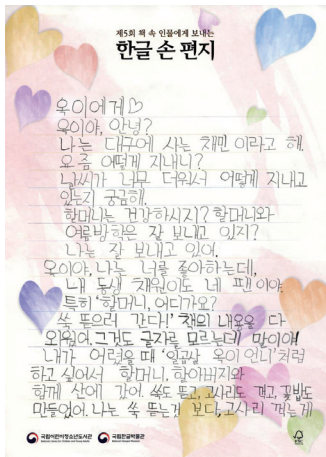 제5회 책 속 인물에게 보내는
한글 손 편지
옥이에게♡
옥이야, 안녕?
나는 대구에 사는 채민 이라고 해.
요즘 어떻게 지내니?
날씨가 너무 더워서 어떻게 지내고
있는지 궁금해.
할머니는 건강하시지? 할머니와
여름방학은 잘 보내고 있지?
나는 잘 보내고 있어.
옥이야, 나는 너를 좋아하는데,
내 동생 채원이도 네 팬이야.
특히 '할머니, 어디가요?
쑥 뜯으러 간다!' 책의 내용을 다
외워어. 그것도 글자를 모르는데 말이야!
내가 어렸을 때 '일곱살 옥이 언니'처럼
하고 싶어서 할머니, 할아버지와
함께 산에 갔어. 쑥도 뜯고, 고사리도 꺾고, 꽃밥도
만들었어. 나는 쑥 뜯는거 보다, 고사리 꺾는게
국립어린이청소년도서관
국립한글박물관
FSC